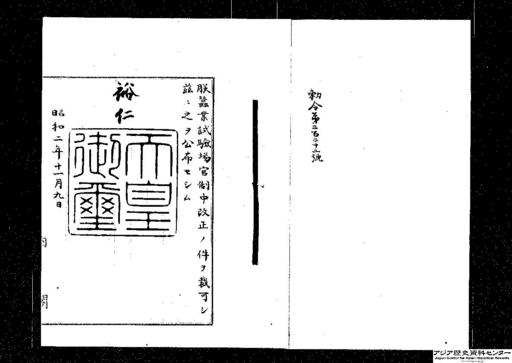 勅令第三百二十三號
朕蠶業試驗場官制中改正ノ件ヲ裁可シ
茲ニ之ヲ公布セシム
裕仁
天皇御璽
昭和二年十一月九日
内閣
アジア歴史資料センター
Japan Center for Asian Historical Records